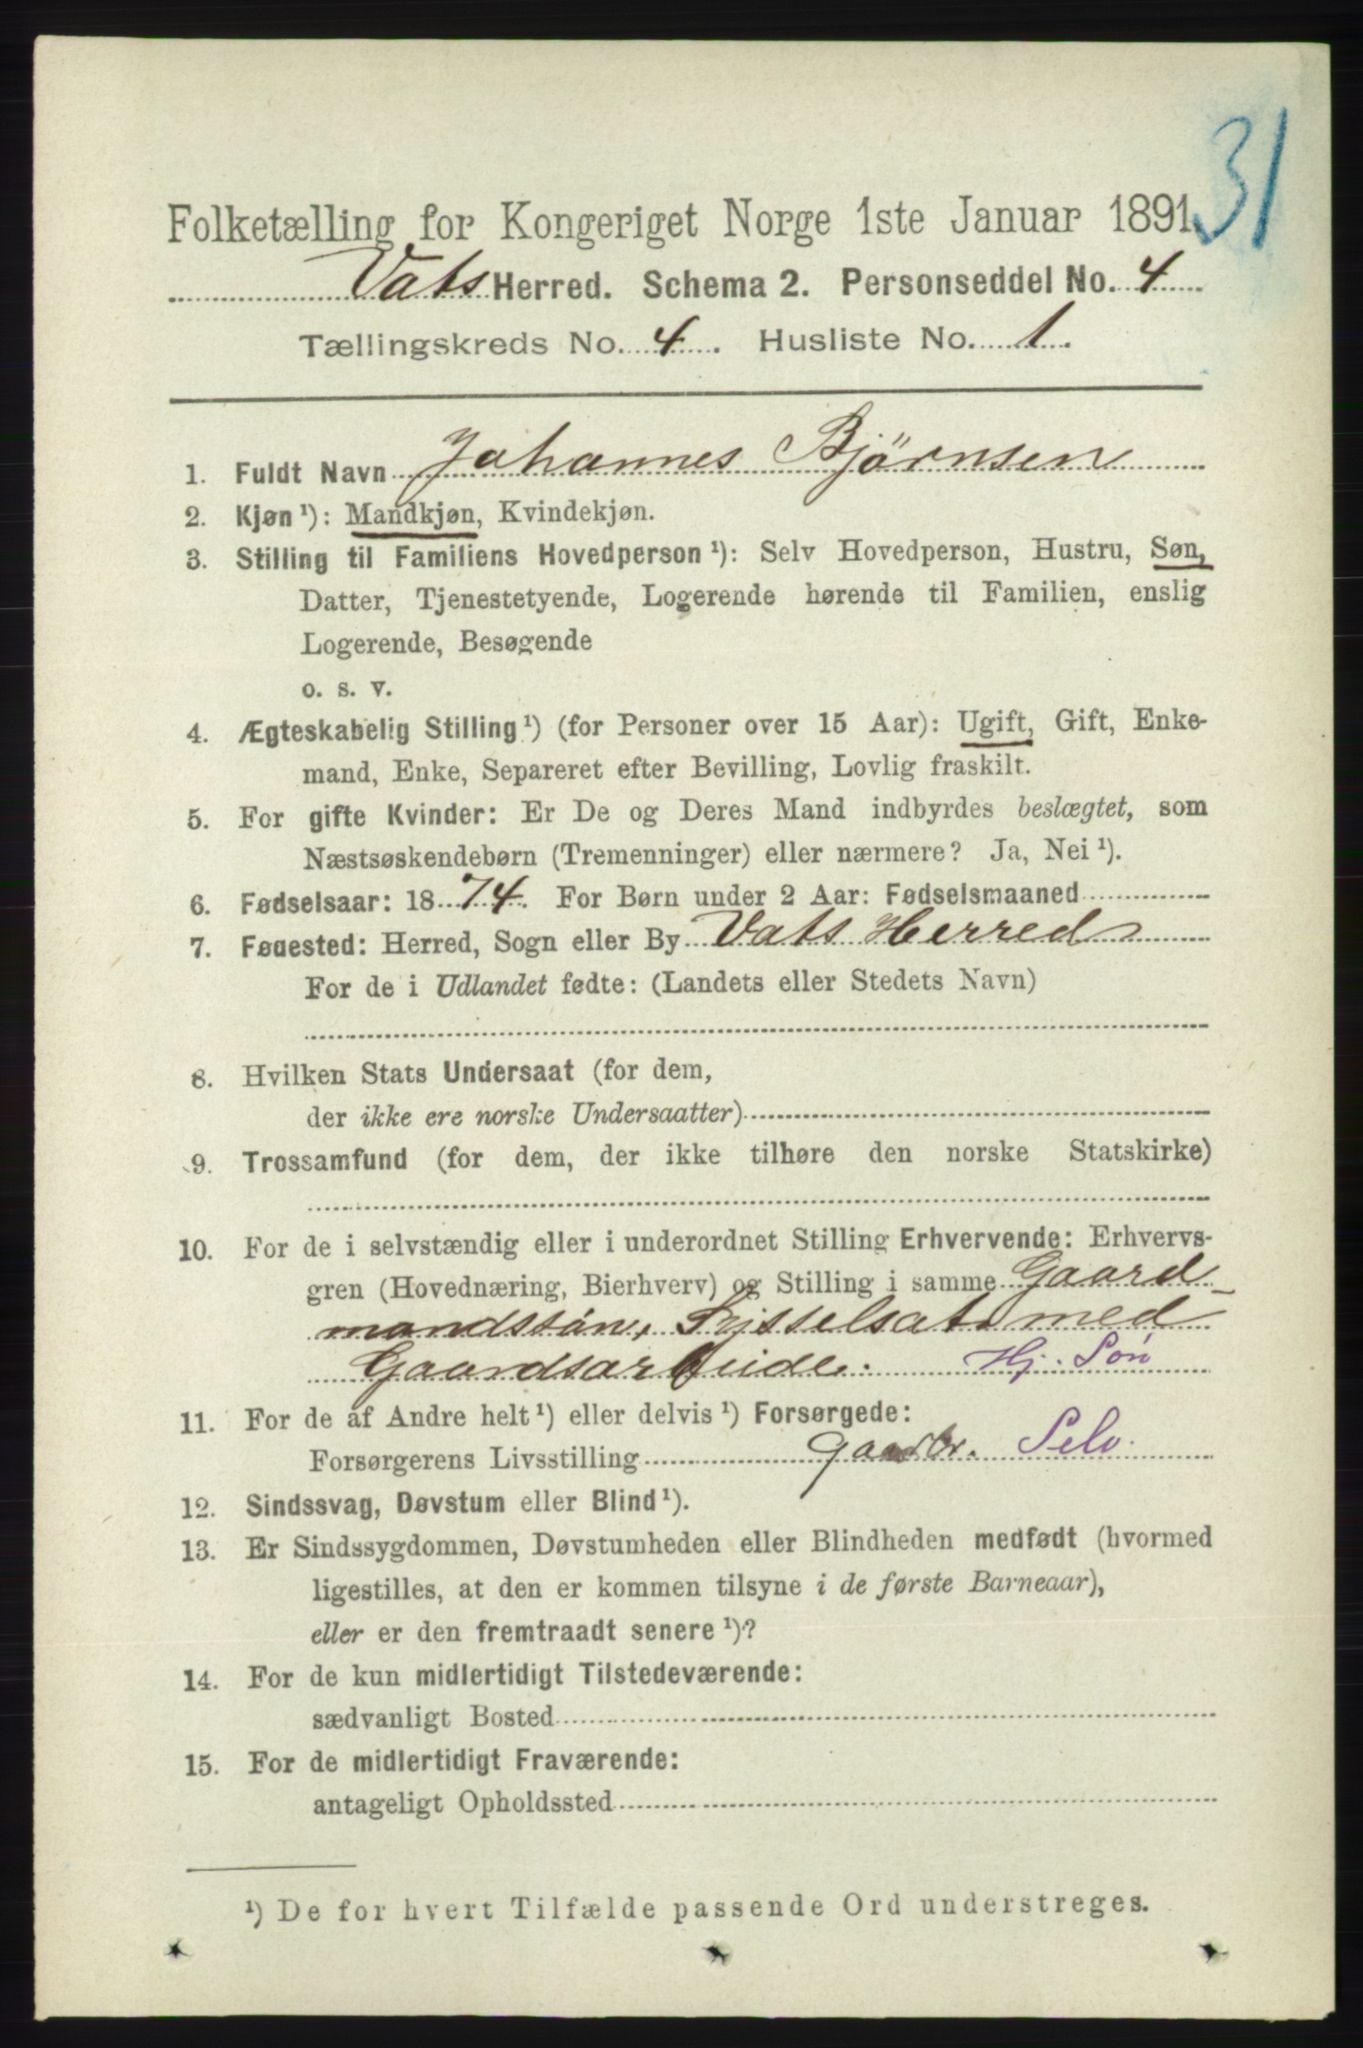 31
Folketælling for Kongeriget Norge 1ste Januar 1891.
Vats Herred. Schema 2. Personseddel No. 4
Tællingskreds No. 4. Husliste No. 1.
1. Fuldt Navn Johannes Bjørnsen
2. Kjøn¹): Mandkjøn, Kvindekjøn.
3. Stilling til Familiens Hovedperson¹): Selv Hovedperson, Hustru, Søn,
Datter, Tjenestetyende, Logerende hørende til Familien, enslig
Logerende, Besøgende
o. s. v.
4. Ægteskabelig Stilling¹) (for Personer over 15 Aar): Ugift, Gift, Enke-
mand, Enke, Separeret efter Bevilling, Lovlig fraskilt.
5. For gifte Kvinder: Er De og Deres Mand indbyrdes beslægtet, som
Næstsøskendebørn (Tremenninger) eller nærmere? Ja, Nei¹).
6. Fødselsaar: 1874. For Børn under 2 Aar: Fødselsmaaned
7. Fødested: Herred, Sogn eller By Vats Herred
For de i Udlandet fødte: (Landets eller Stedets Navn)
8. Hvilken Stats Undersaat (for dem,
der ikke ere norske Undersaatter)
9. Trossamfund (for dem, der ikke tilhøre den norske Statskirke)
10. For de i selvstændig eller i underordnet Stilling Erhvervende: Erhvervs-
gren (Hovednæring, Bierhverv) og Stilling i samme Gaard-
mandssøn, Sysselsat med
Gaardsarbeide. Hj. Søn
11. For de af Andre helt¹) eller delvis¹) Forsørgede:
Forsørgerens Livsstilling gaardbr. Selv.
12. Sindssvag, Døvstum eller Blind¹).
13. Er Sindssygdommen, Døvstumheden eller Blindheden medfødt (hvormed
ligestilles, at den er kommen tilsyne i de første Barneaar),
eller er den fremtraadt senere¹)?
14. For de kun midlertidigt Tilstedeværende:
sædvanligt Bosted
15. For de midlertidigt Fraværende:
antageligt Opholdssted
¹) De for hvert Tilfælde passende Ord understreges.